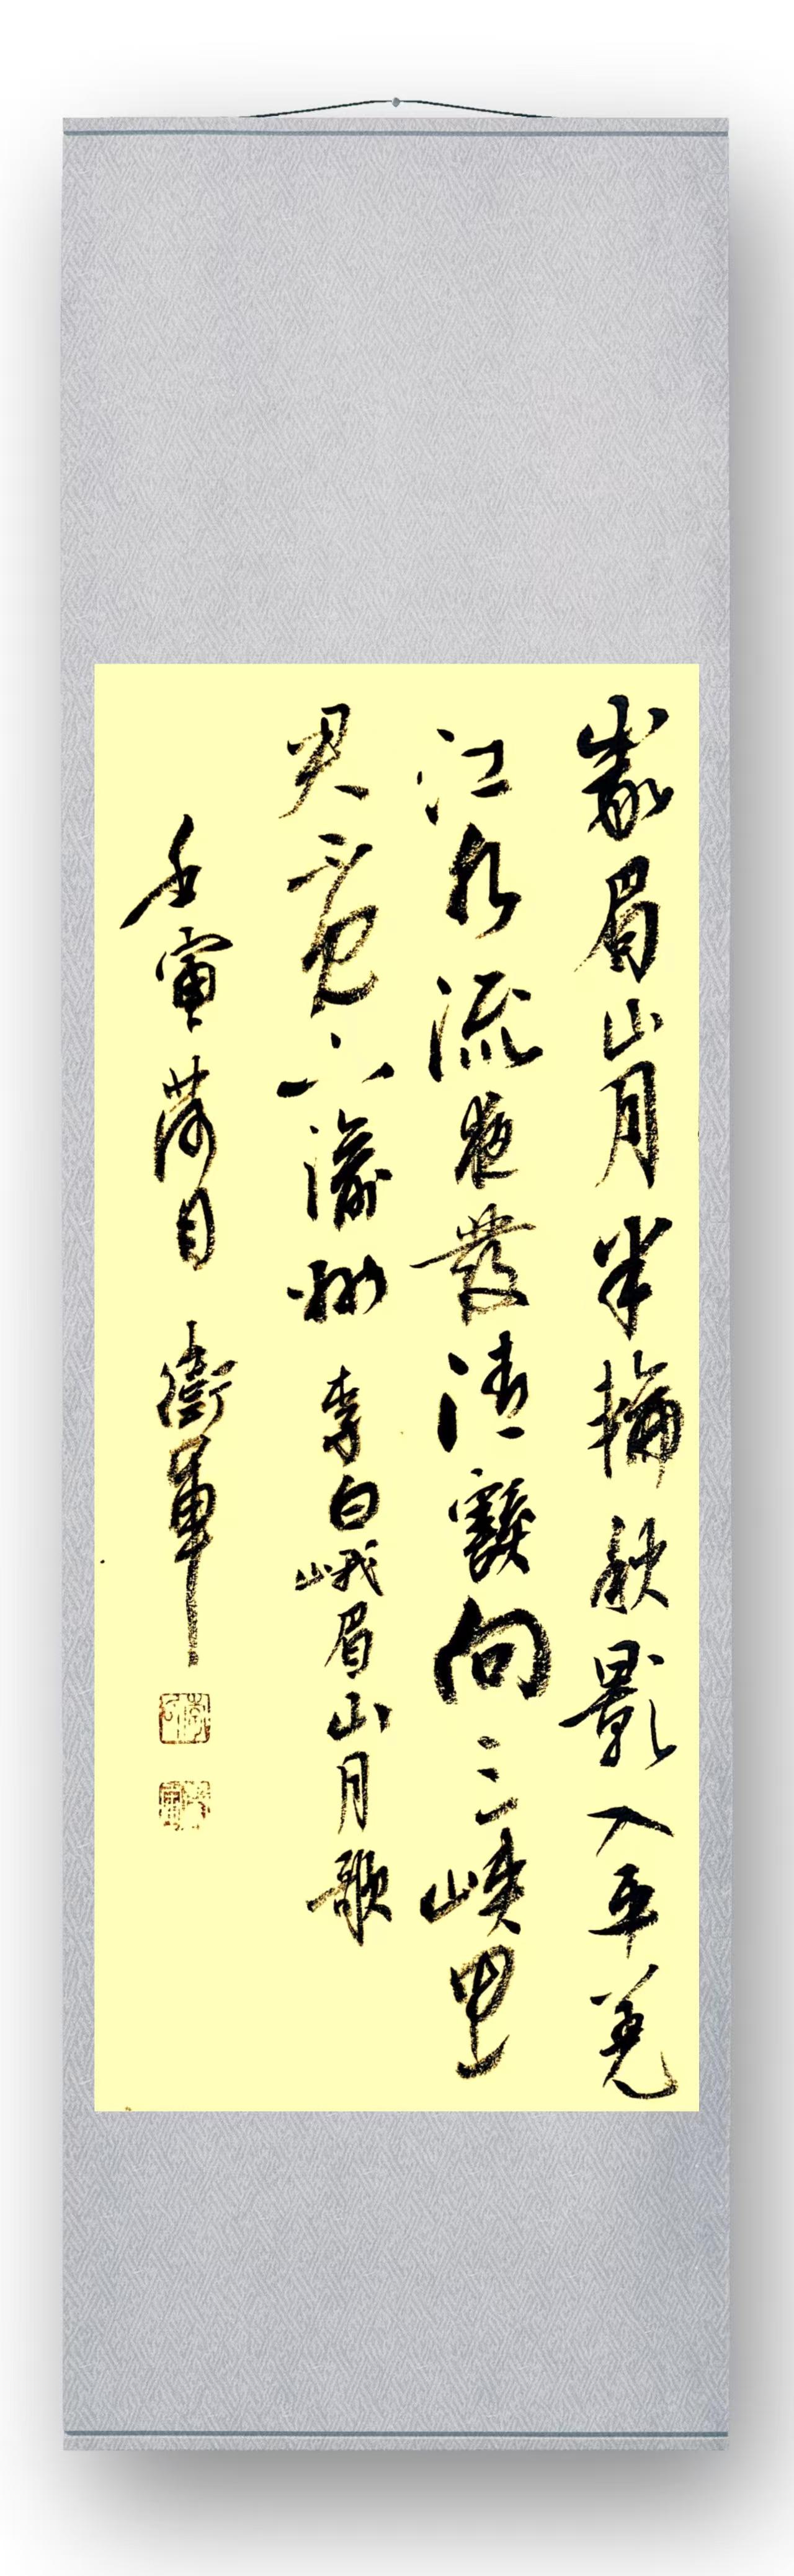 峩眉山月半輪秋影入平羌
江水流夜發清谿向三峽思
君不見下渝州 李白峨眉山月歌
壬寅荷月 衛軍